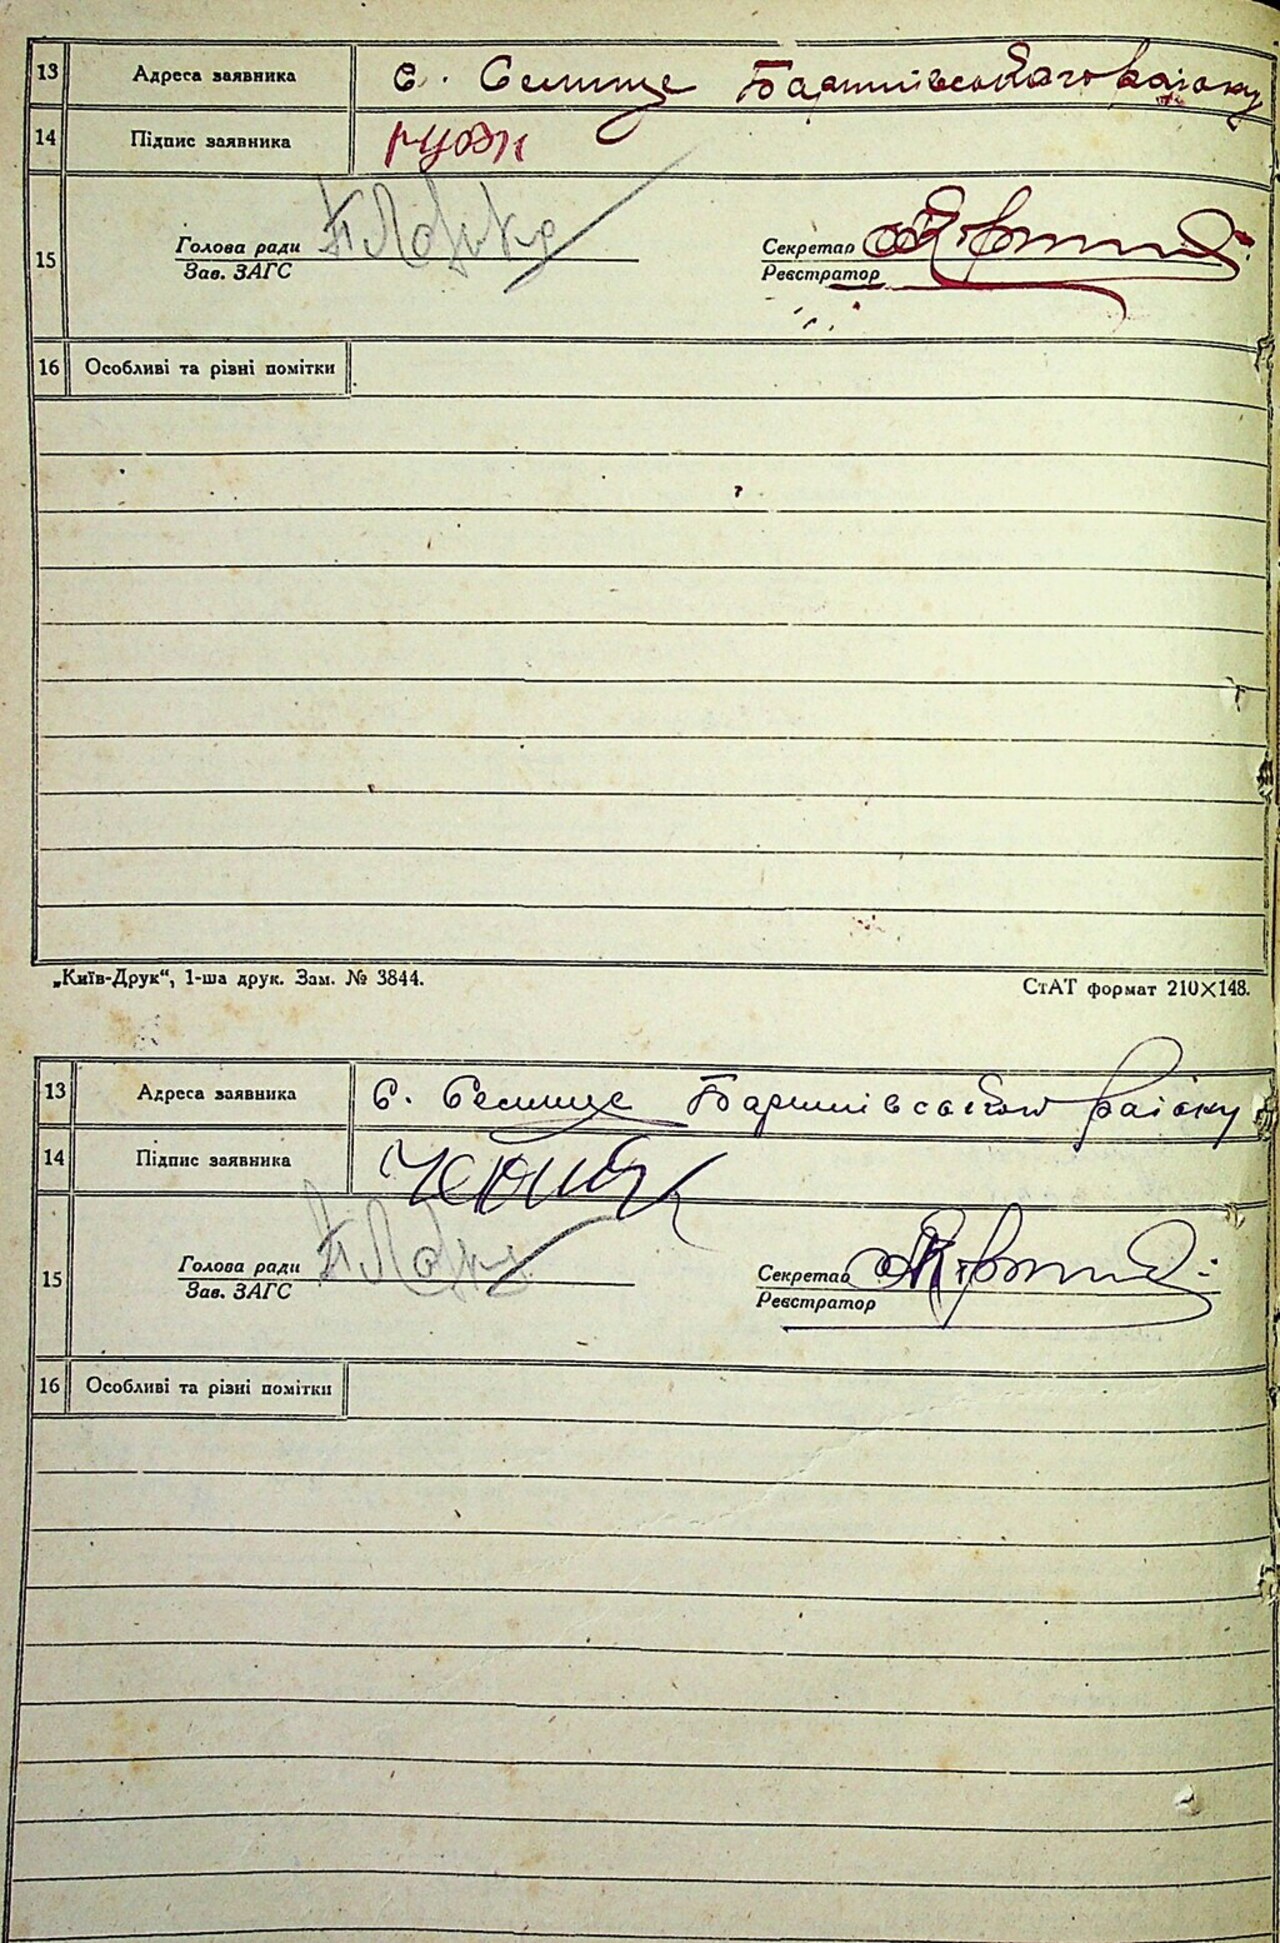 13 Адреса заявника с. Селище Баришівського району
14 Підпис заявника
15 Голова ради Секретар
Зав. ЗАГС Реєстратор
16 Особливі та різні помітки
„Київ-Друк“, 1-ша друк. Зам. № 3844. СтАТ формат 210×148.
13 Адреса заявника с. Селище Баришівського району
14 Підпис заявника
15 Голова ради Секретар
Зав. ЗАГС Реєстратор
16 Особливі та різні помітки